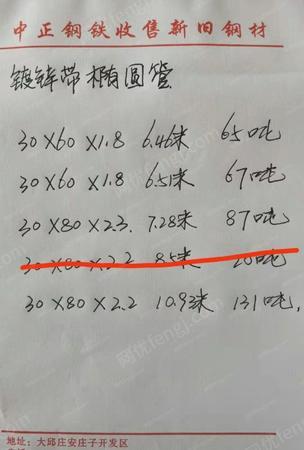 中正钢铁收售新旧钢材
镀锌带椭圆管
30×60×1.8 6.46米 65吨
30×60×1.8 6.51米 67吨
30×80×2.3. 7.28米 87吨
30×80×2.2 8.5米 20吨
30×80×2.2 10.93米 131吨,
地址:大邱庄安庄子开发区